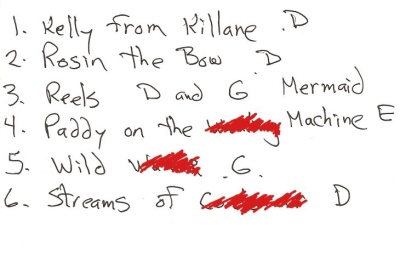 1. Kelly from Killane .D
2. Rosin the Bow D
3. Reels D and G Mermaid
4. Paddy on the Machine E
5. Wild G.
6. Streams of D